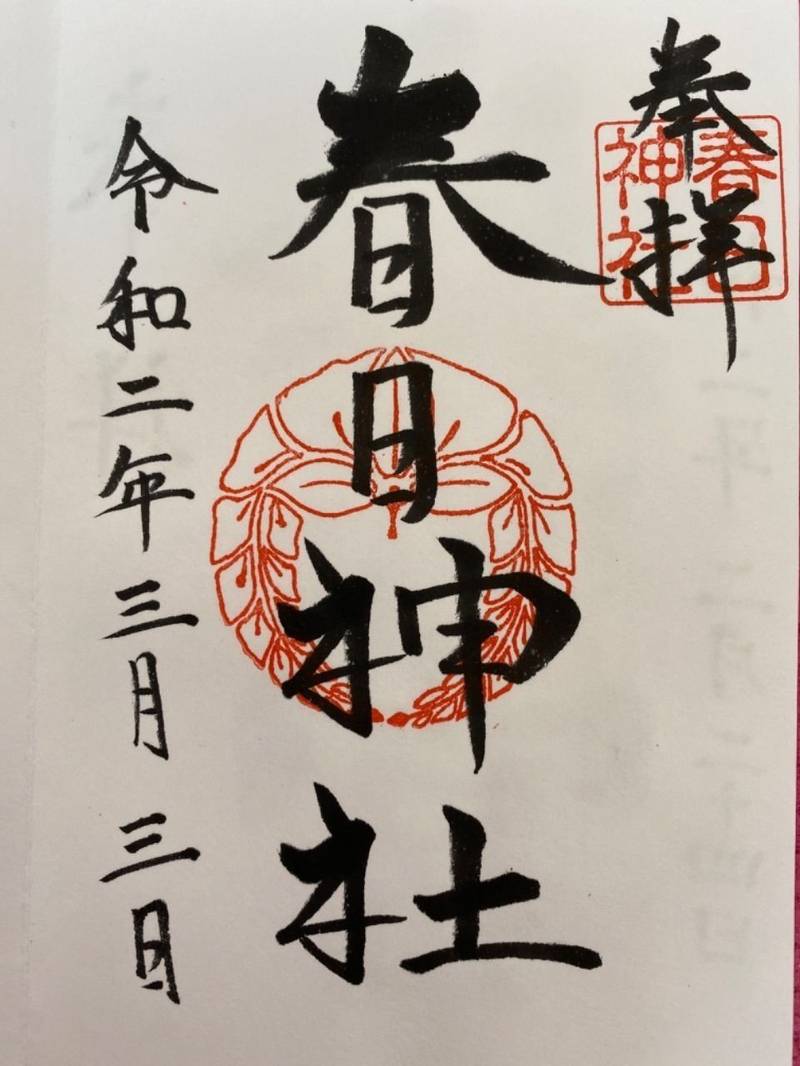 奉拝
春日神社
春日神社
令和二年三月三日